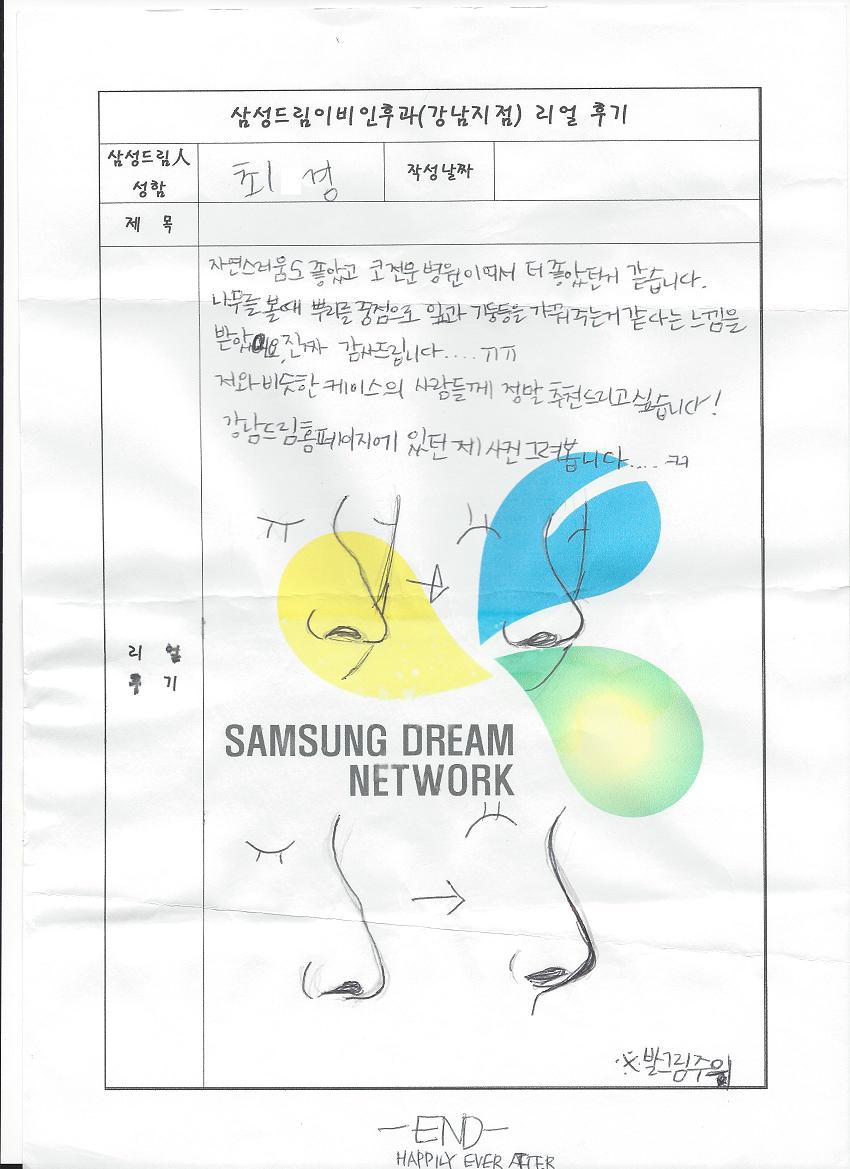 삼성드림이비인후과(강남지점) 리얼 후기
삼성드림人
성함
최 경
작성날짜
제 목
자연스러움도 좋았고 코전문병원이여서 더 좋았던거 같습니다.
나무를 볼때 뿌리를 중점으로 잎과 기둥등을 가꿔주는거 같다는 느낌을
받았어요, 진짜 감사드립니다.... ㅠㅠ
저와 비슷한 케이스의 사람들께 정말 추천드리고싶습니다!
강남드림홈페이지에 있던 제 사진 그려봅니다.... ㅋㅋ
리 얼
후 기
SAMSUNG DREAM
NETWORK
※발그림주의
-END-
HAPPILY EVER AFTER